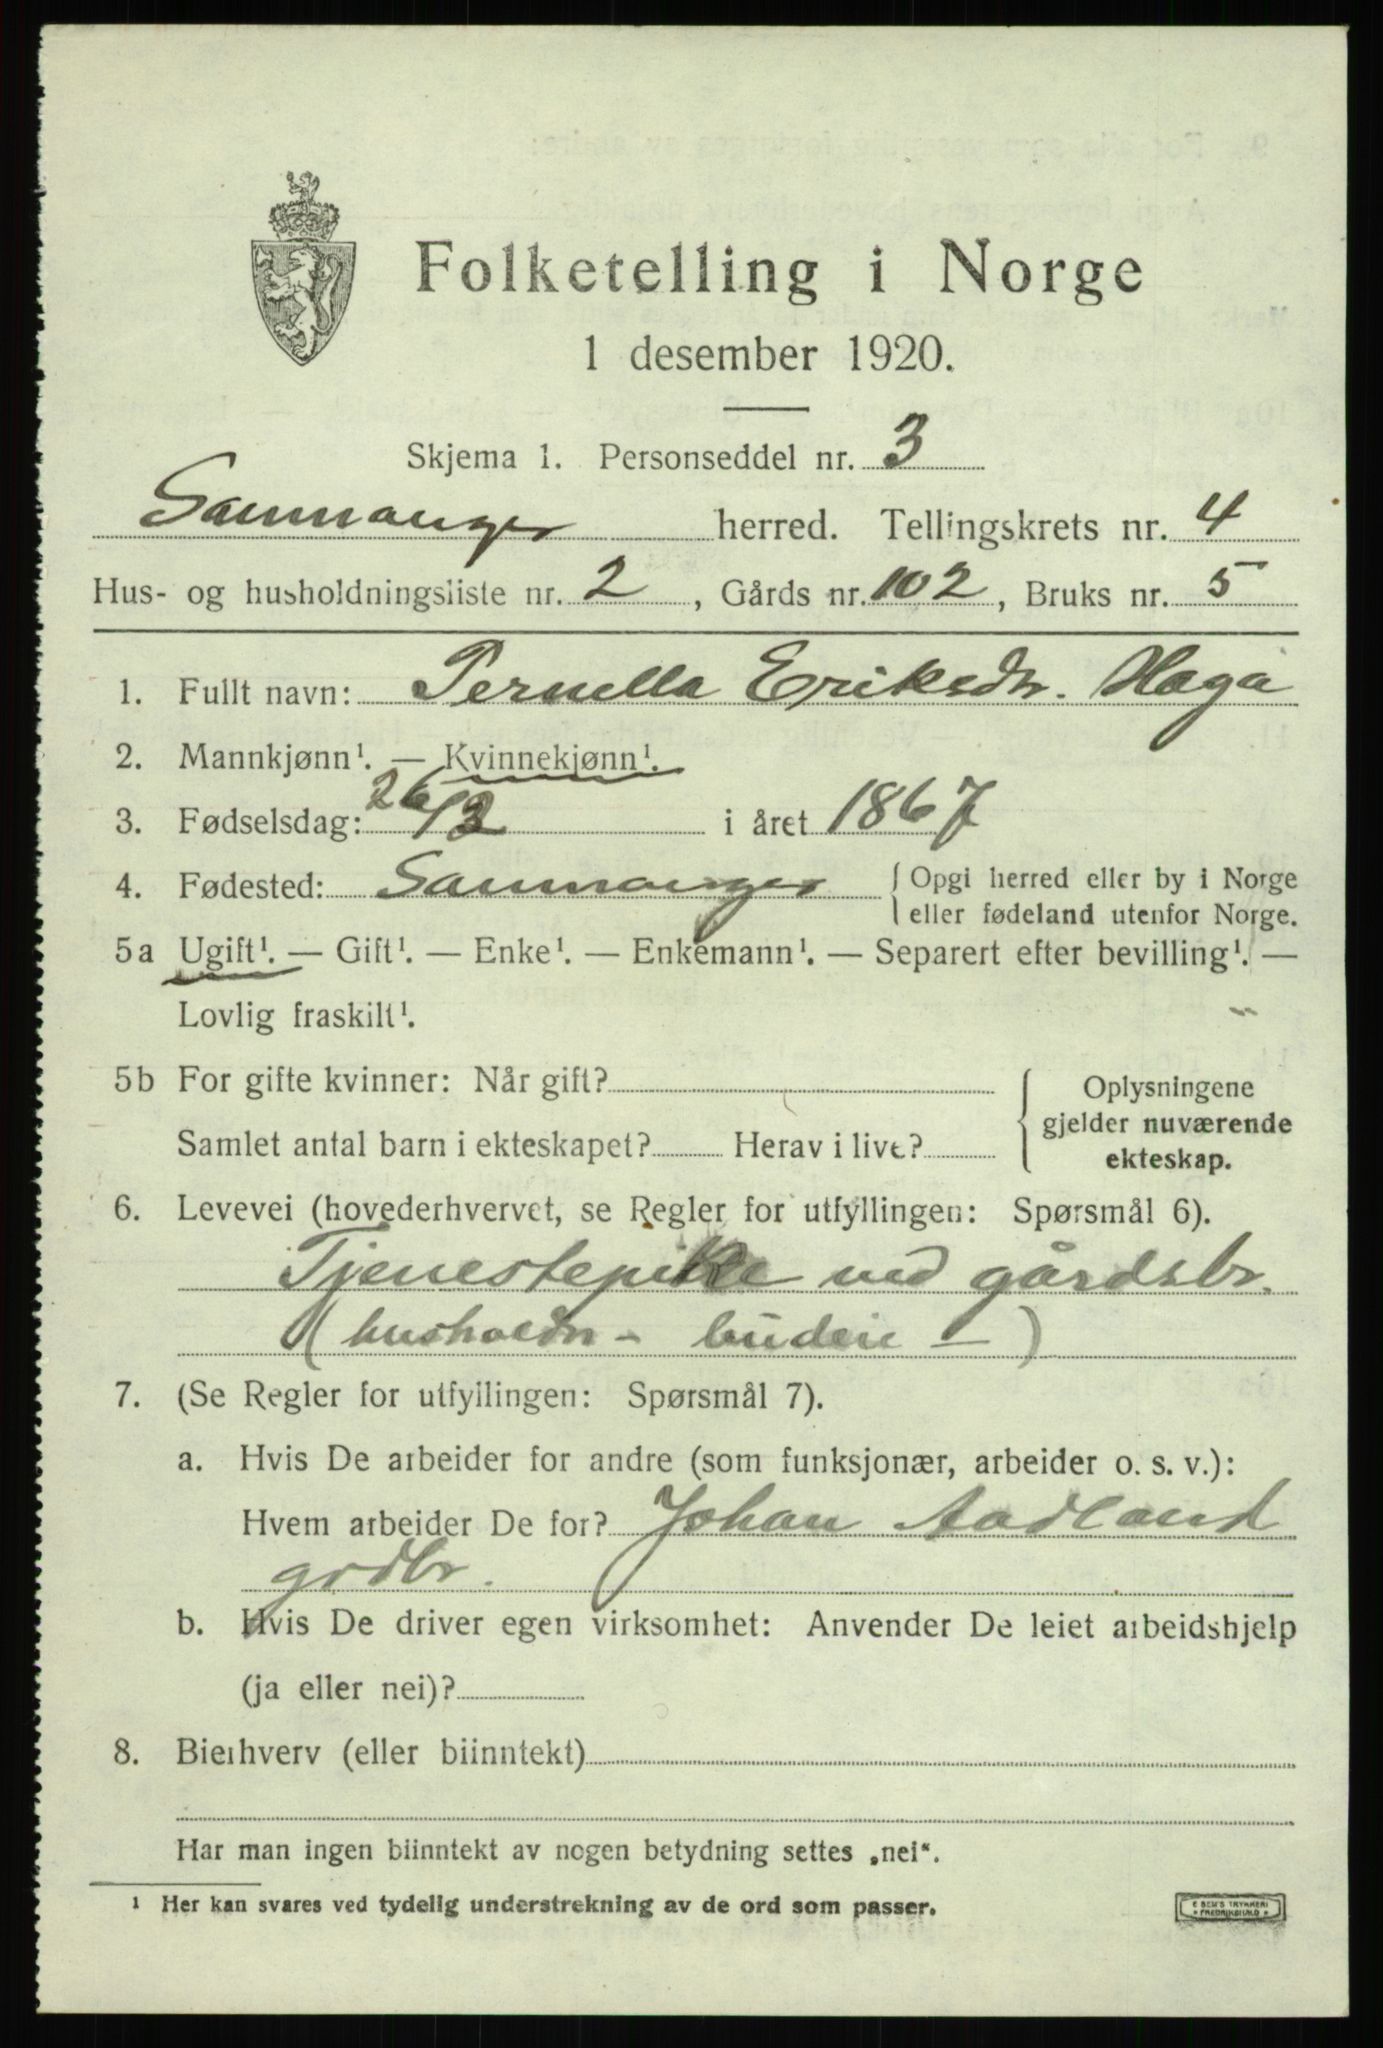 Folketelling i Norge
1 desember 1920.
Skjema 1. Personseddel nr. 3
Samnanger herred. Tellingskrets nr. 4
Hus- og husholdningsliste nr. 2, Gårds nr. 102, Bruks nr. 5
1. Fullt navn: Pernella Eriksdtr. Haga
2. Mannkjønn¹. — Kvinnekjønn¹.
3. Fødselsdag: 26/2 i året 1867
4. Fødested: Samnanger { Opgi herred eller by i Norge
eller fødeland utenfor Norge.
5a Ugift¹. — Gift¹. — Enke¹. — Enkemann¹. — Separert efter bevilling¹. —
Lovlig fraskilt¹.
5b For gifte kvinner: Når gift?
Samlet antal barn i ekteskapet? Herav i live?
{ Oplysningene
gjelder nuværende
ekteskap.
6. Levevei (hovederhvervet, se Regler for utfyllingen: Spørsmål 6).
Tjenestepike ved gårdsbr.
(husholdn - budeie -)
7. (Se Regler for utfyllingen: Spørsmål 7).
a. Hvis De arbeider for andre (som funksjonær, arbeider o. s. v.):
Hvem arbeider De for? Johan Aadland
grdbr.
b. Hvis De driver egen virksomhet: Anvender De leiet arbeidshjelp
(ja eller nei)?
8. Bierhverv (eller biinntekt)
Har man ingen biinntekt av nogen betydning settes „nei“.
¹ Her kan svares ved tydelig understrekning av de ord som passer.
E SEM'S TRYKKERI
FREDRIKSHALD